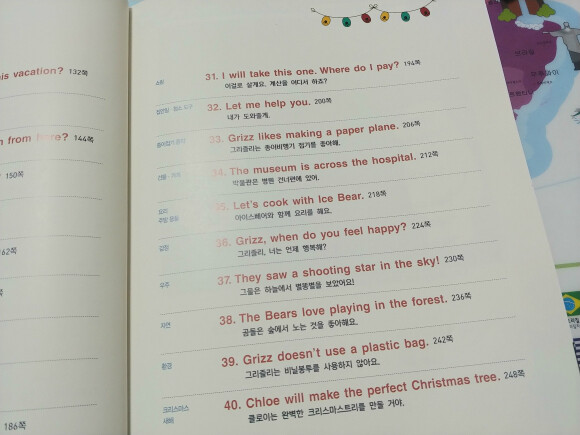 his vacation? 132쪽
n from here? 144쪽
150쪽
162쪽
186쪽
쇼핑
31. I will take this one. Where do I pay? 194쪽
이걸로 살게요. 계산을 어디서 하죠?
32. Let me help you. 200쪽
내가 도와줄게.
33. Grizz likes making a paper plane. 206쪽
그리즐리는 종이비행기 접기를 좋아해.
34. The museum is across the hospital. 212쪽
박물관은 병원 건너편에 있어.
요리
35. Let's cook with Ice Bear. 218쪽
아이스베어와 함께 요리를 해요.
감정
36. Grizz, when do you feel happy? 224쪽
그리즐리, 너는 언제 행복해?
우주
37. They saw a shooting star in the sky! 230쪽
그들은 하늘에서 별똥별을 보았어요!
자연
38. The Bears love playing in the forest. 236쪽
곰들은 숲에서 노는 것을 좋아해요.
환경
39. Grizz doesn't use a plastic bag. 242쪽
그리즐리는 비닐봉투를 사용하지 않아요.
크리스마스
새해
40. Chloe will make the perfect Christmas tree. 248쪽
클로이는 완벽한 크리스마스트리를 만들 거야.